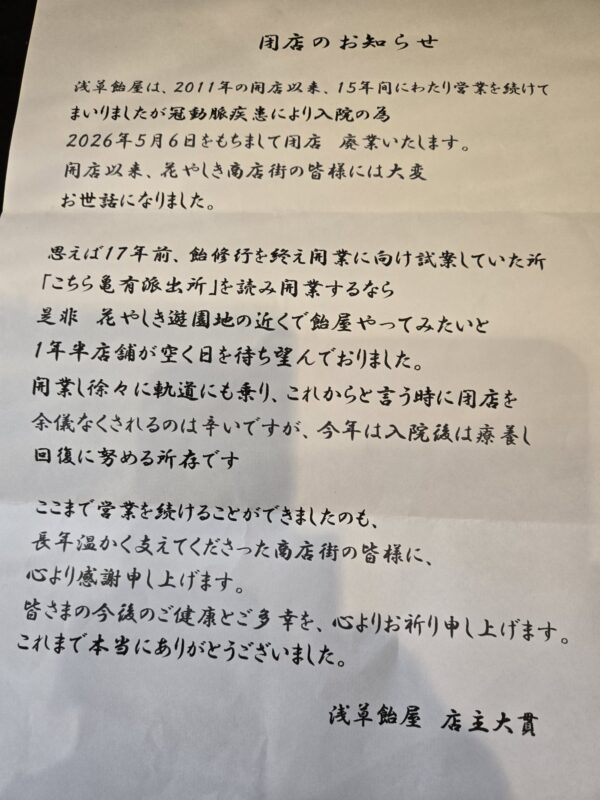 閉店のお知らせ
浅草飴屋は、2011年の開店以来、15年間にわたり営業を続けて
まいりましたが冠動脈疾患により入院の為
2026年5月6日をもちまして閉店　廃業いたします。
開店以来、花やしき商店街の皆様には大変
お世話になりました。
思えば17年前、飴修行を終え開業に向け試案していた所
「こちら亀有派出所」を読み開業するなら
是非　花やしき遊園地の近くで飴屋やってみたいと
1年半店舗が空く日を待ち望んでおりました。
開業し徐々に軌道にも乗り、これからと言う時に閉店を
余儀なくされるのは辛いですが、今年は入院後は療養し
回復に努める所存です
ここまで営業を続けることができましたのも、
長年温かく支えてくださった商店街の皆様に、
心より感謝申し上げます。
皆さまの今後のご健康とご多幸を、心よりお祈り申し上げます。
これまで本当にありがとうございました。
浅草飴屋　店主大貫